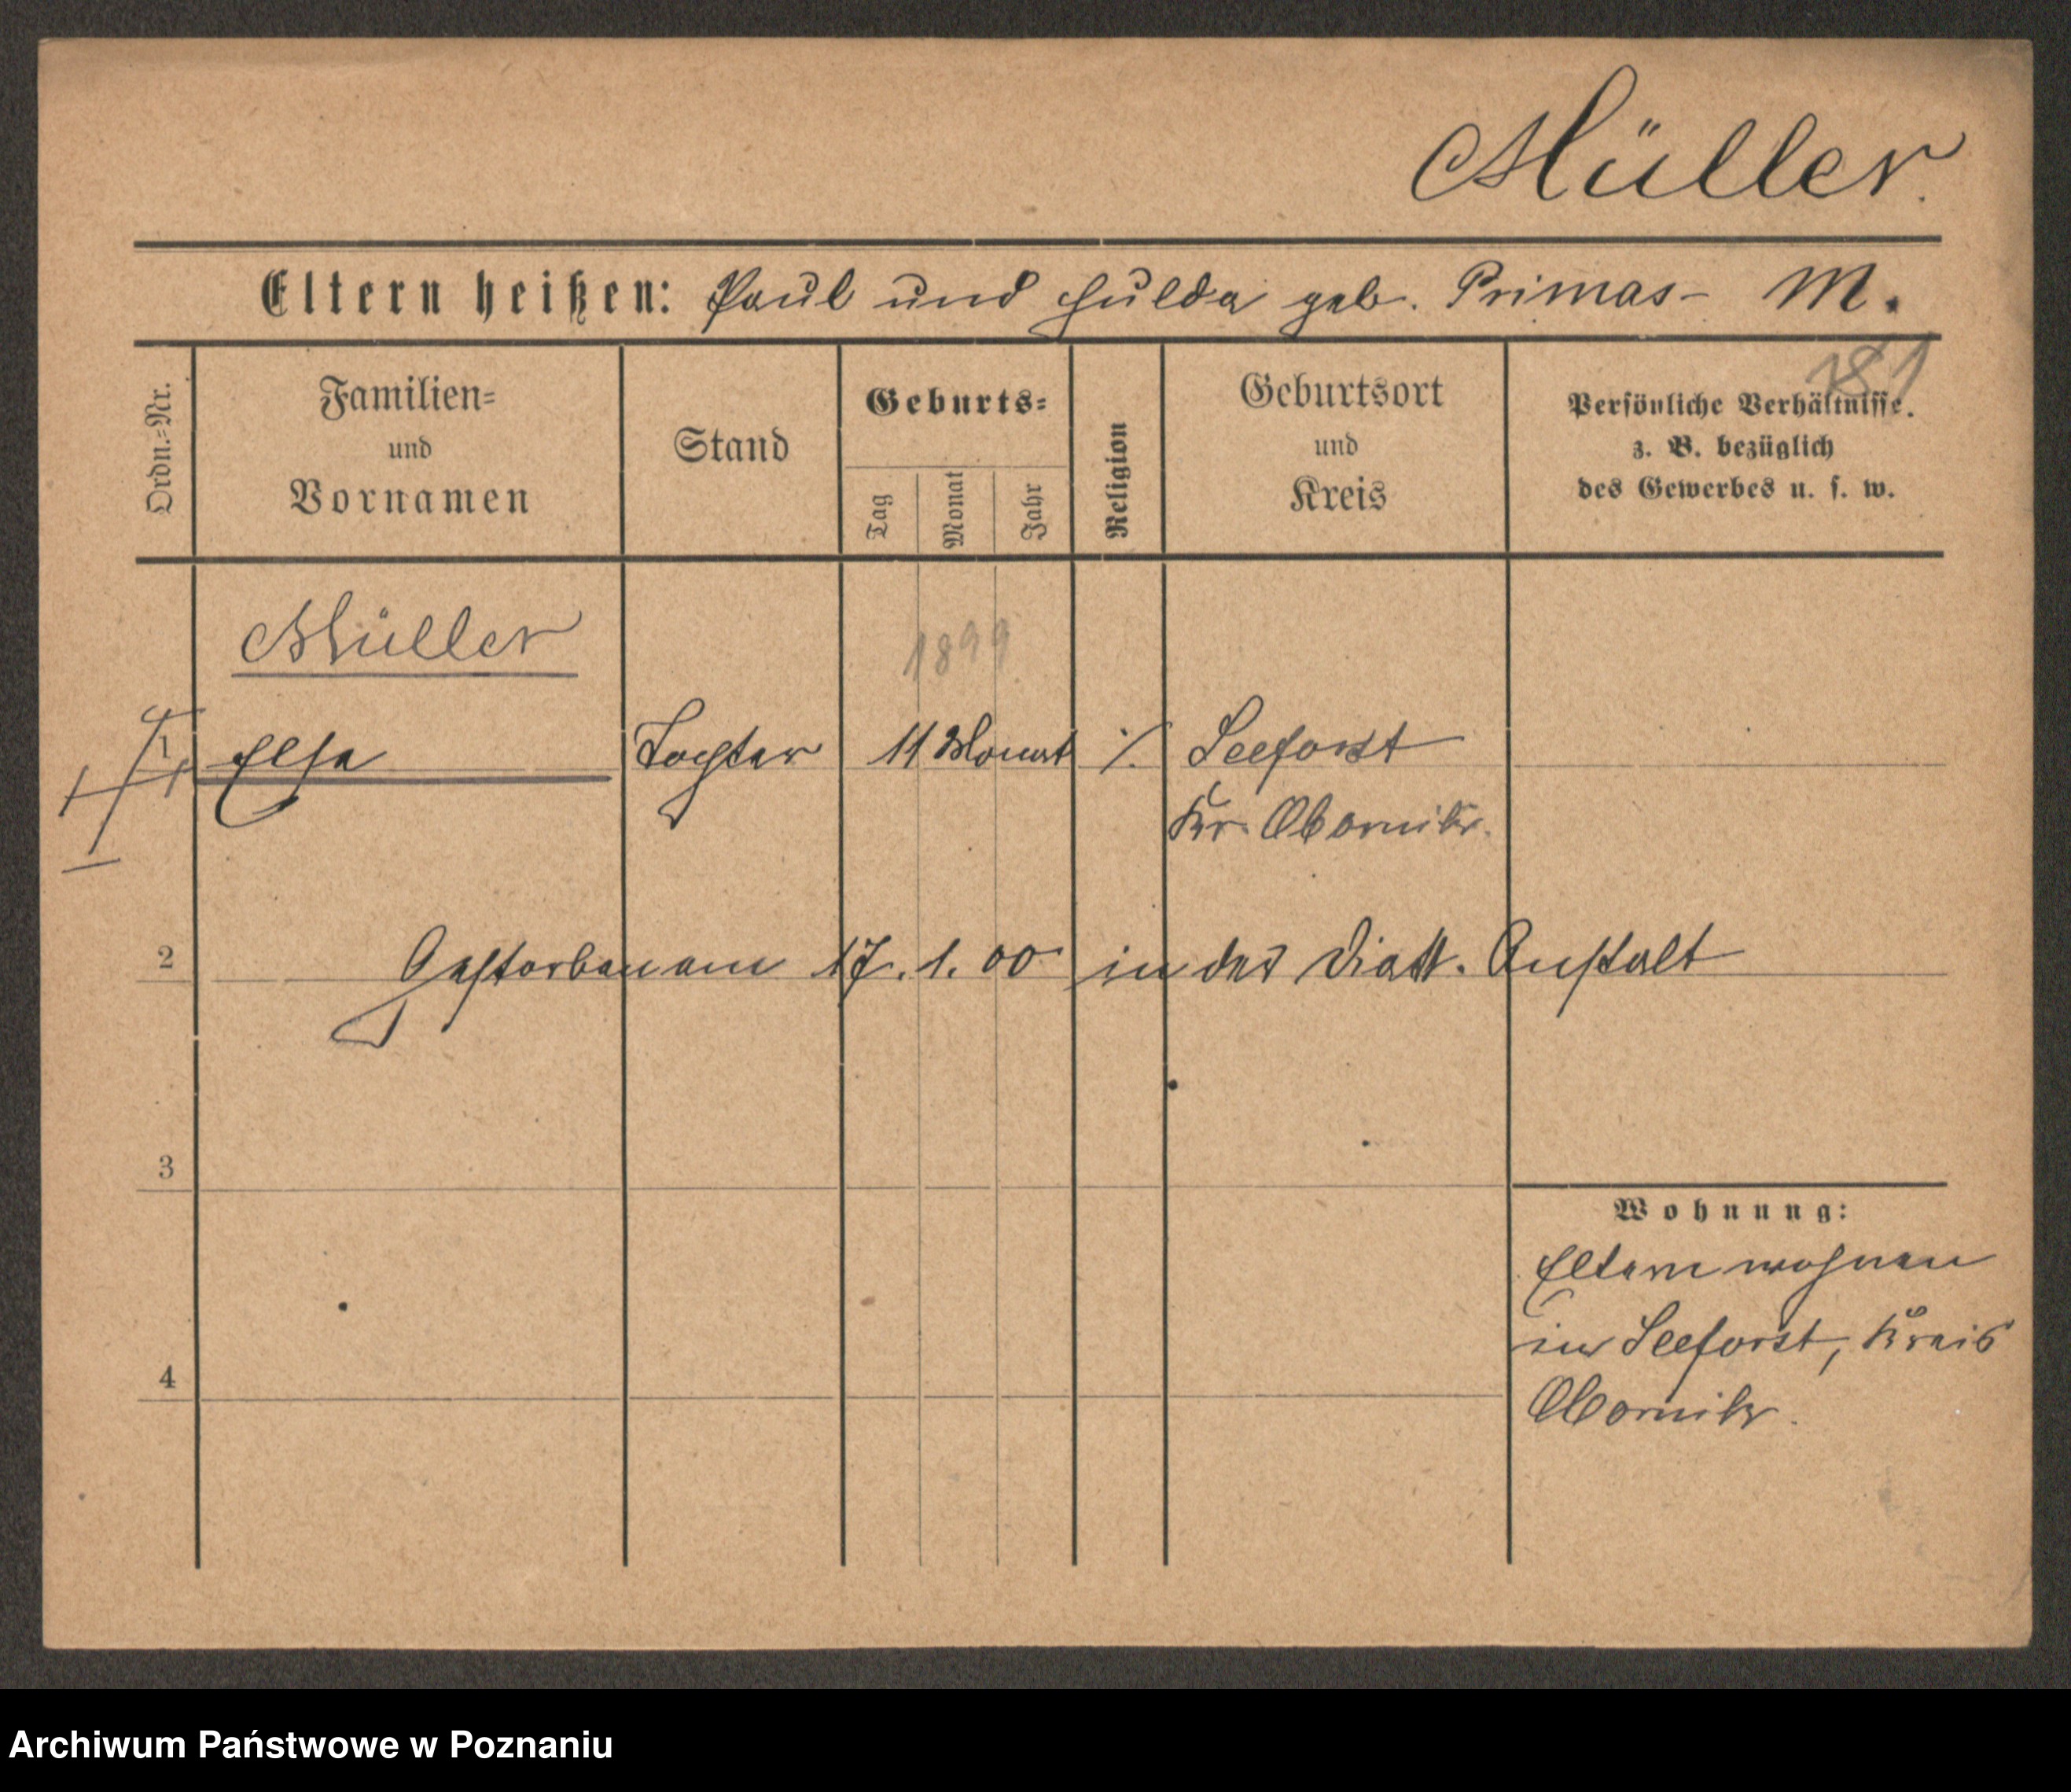 Müller.
Eltern heißen: Paul und Hulda geb. Primas- M.
181
Ordn.=Nr.
Familien=
und
Vornamen
Stand
Geburts=
Tag
Monat
Jahr
Religion
Geburtsort
und
Kreis
Persönliche Verhältnisse.
z. B. bezüglich
des Gewerbes u. s. w.
Müller
1899
1 Else Tochter 11 Monat ·/. Seeforst
Kr. Obornik.
2 Gestorben am 17. 1. 00 in der Anstalt
3
Wohnung:
Eltern wohnen
in Seeforst, Kreis
4
Obornik.
Archiwum Państwowe w Poznaniu